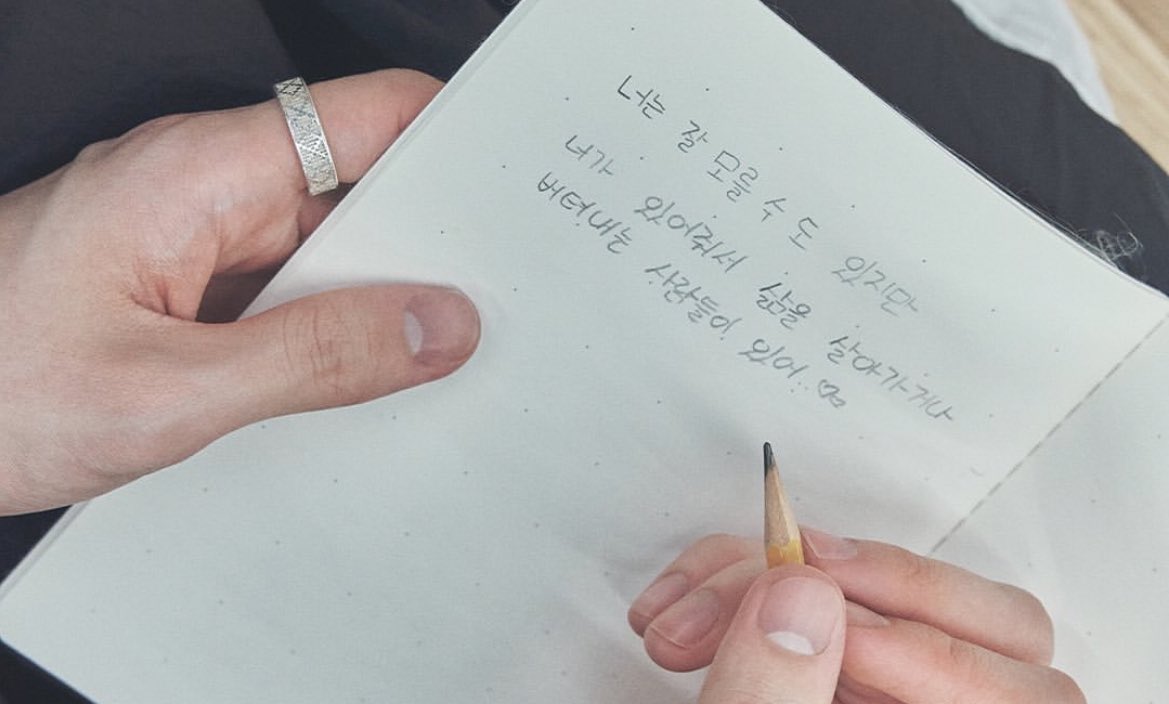 너는 잘 모를 수 도 있지만
너가 있어줘서 삶을 살아가거나
버텨내는 사람들이 있어..♡